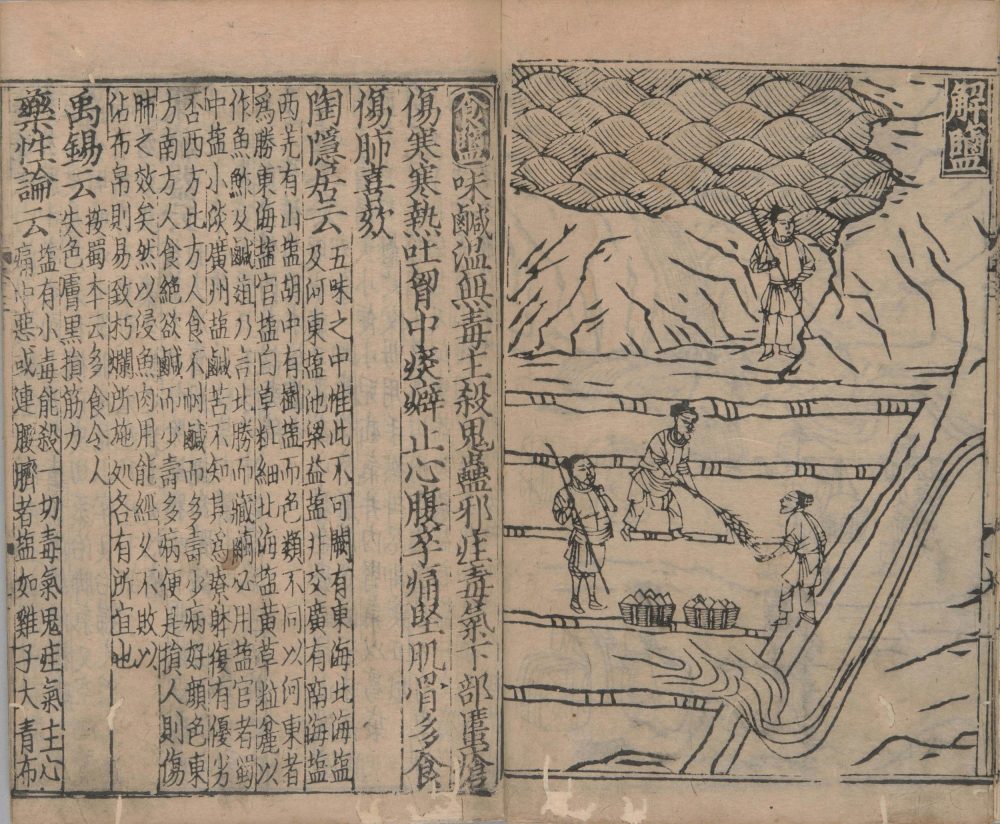 解鹽
食鹽味鹹溫無毒主殺鬼蠱邪疰毒氣下部䘌瘡
傷寒寒熱吐胷中痰癖止心腹卒痛堅肌骨多食
傷肺喜欬
陶隱居云五味之中惟此不可闕有東海北海塩
及河東塩池梁益塩井交廣有南海塩
西羌有山塩胡中有樹塩而色類不同以河東者
爲勝東海塩官塩白草粒細北海塩黄草粒麄以
作魚鮓及鹹菹乃言北勝而藏繭必用塩官者蜀
中塩小淡廣州塩鹹苦不知其爲療躰復有優劣
否西方北方人食不耐鹹而多壽少病好顔色東
方南方人食絶欲鹹而少壽多病便是損人則傷
肺之效矣然以浸魚肉用能經久不敗以
沾布帛則易致朽爛所施处各有所宜也
禹錫云按蜀本云多食令人
失色膚黑損筋力
藥性論云塩有小毒能殺一切毒氣鬼疰氣主心
痛中惡或連腰臍者塩如雞子大青布